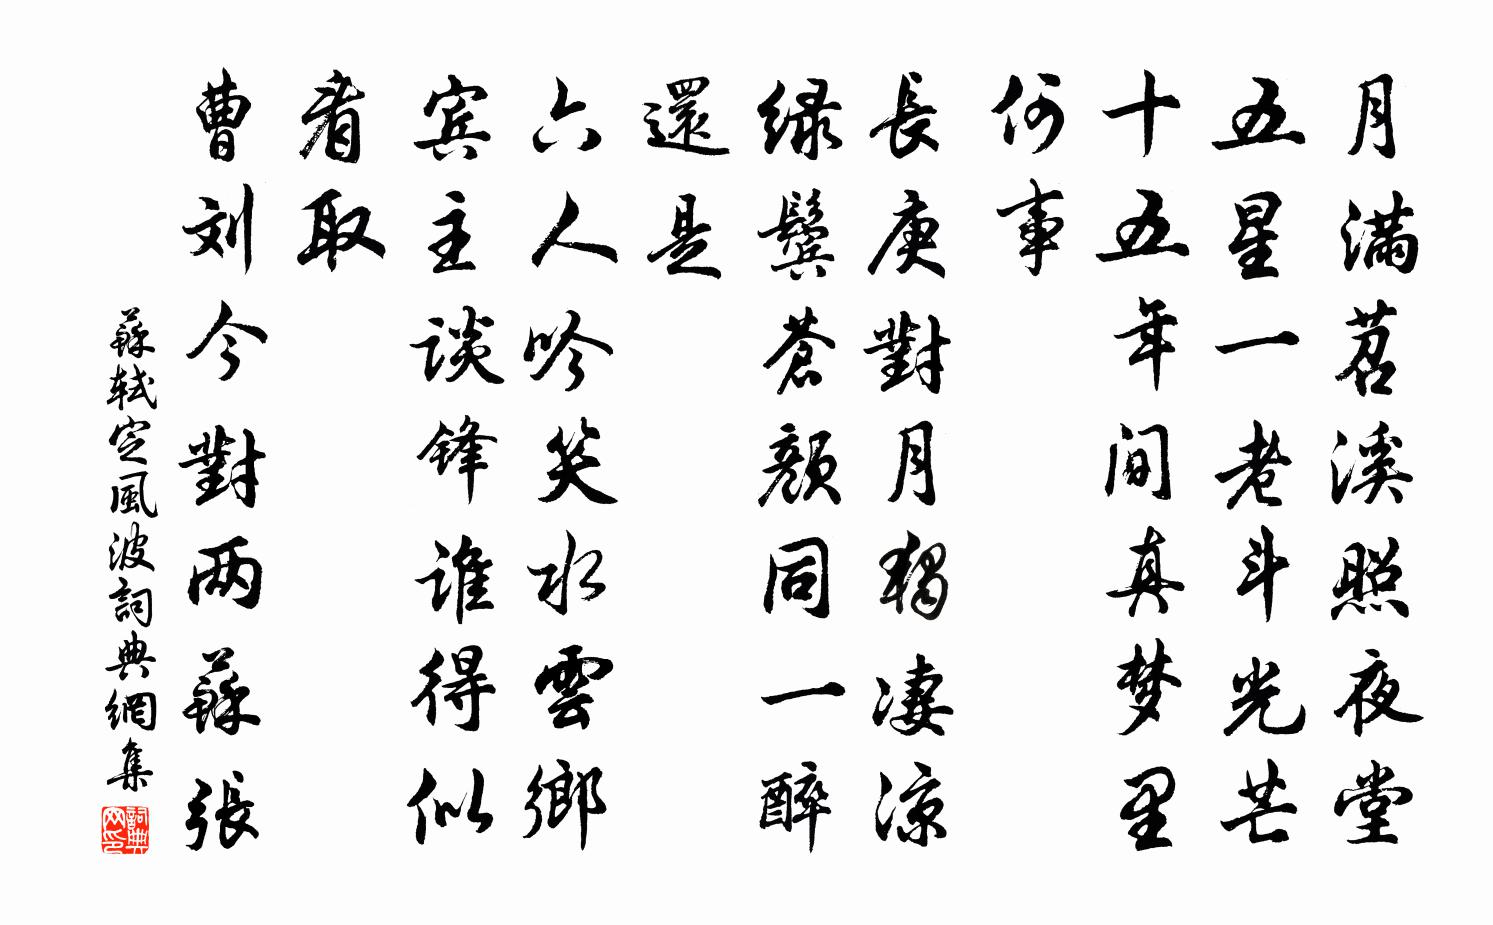 月满苕溪照夜堂
五星一老斗光芒
十五年间真梦里
何事
長庚對月独凄凉
绿鬓蒼颜同一醉
還是
六人吟笑水雲鄉
宾主谈锋谁得似
看取
曹刘今對两蘇張
蘇轼定風波詞典網集
詞典网印